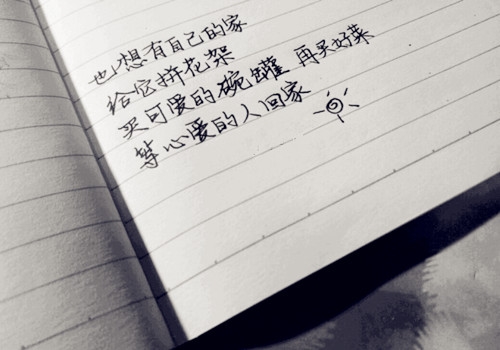 也想有自己的家
给它拼花架
买可爱的碗罐 再买好菜
等心爱的人回家